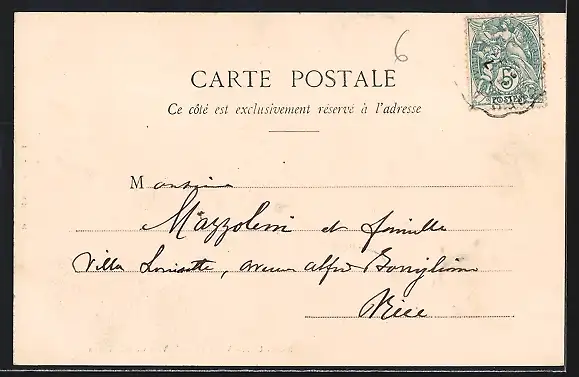 6
5c
POSTES
CARTE POSTALE
Ce côté est exclusivement réservé à l'adresse
Monsieur
Mazzoleni et famille
Villa Louisette, avenue Alfred Borriglione
Nice